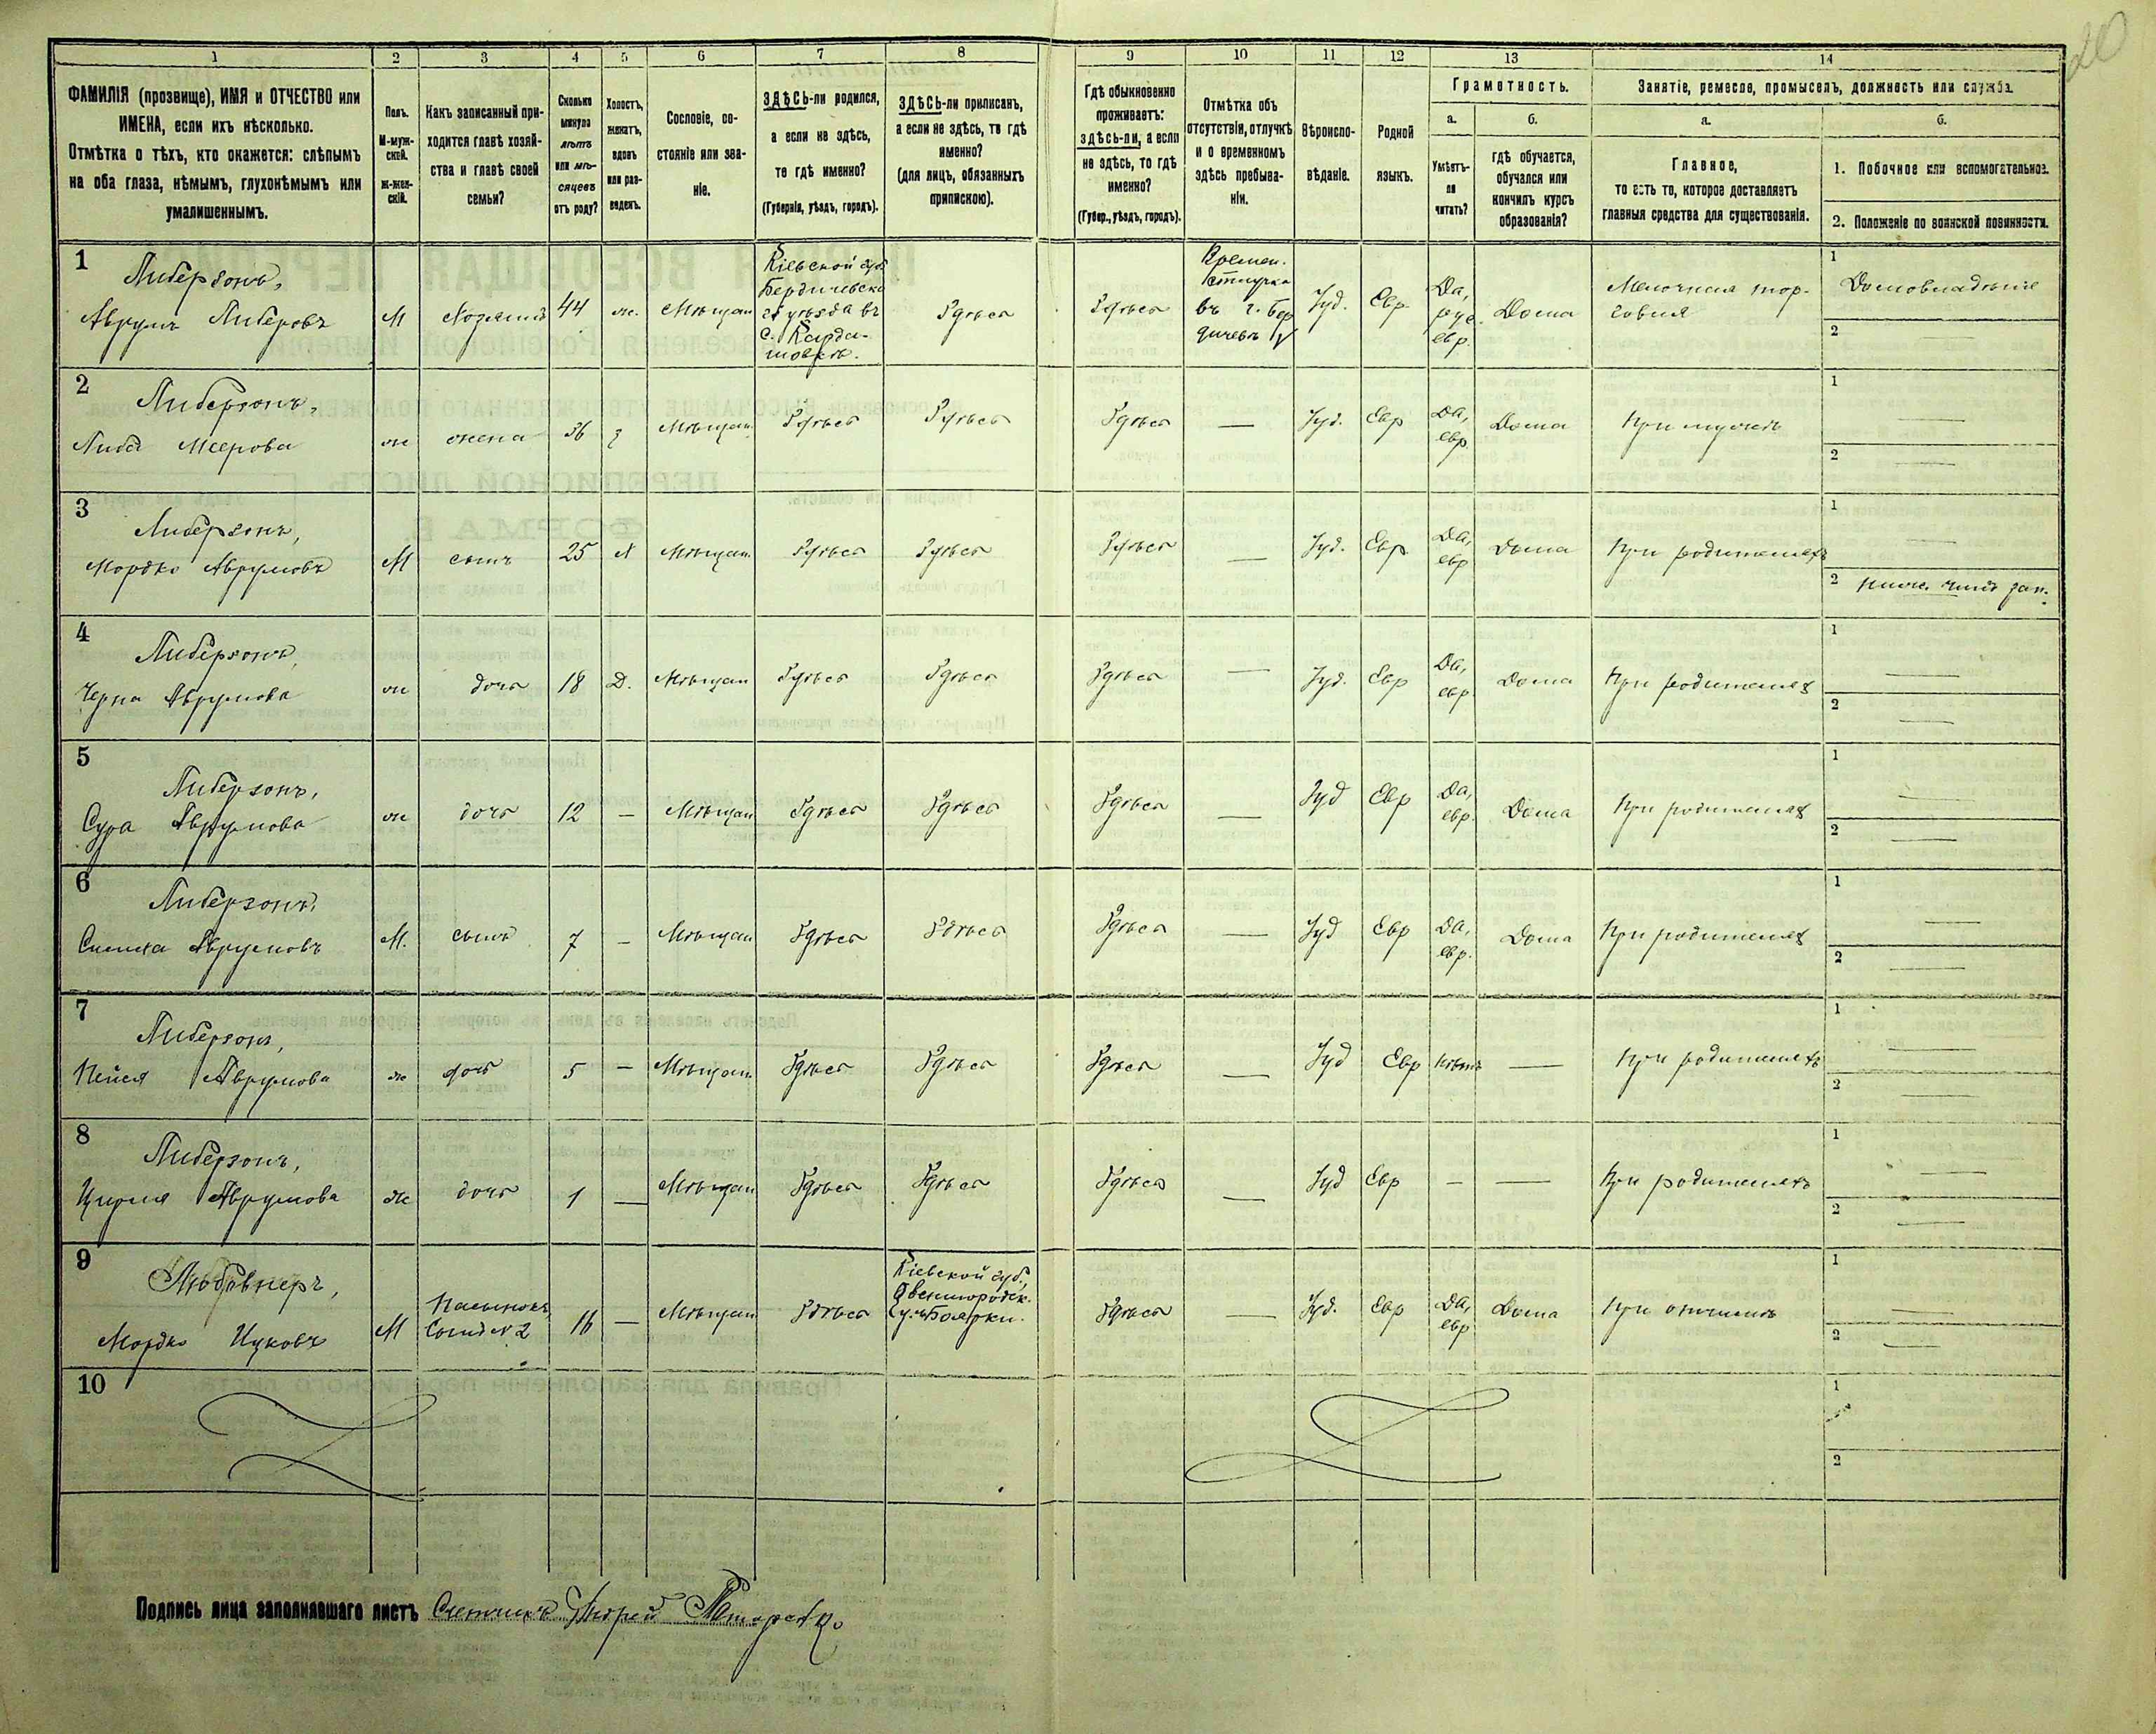 20
1 2 3 4 5 6 7 8 9 10 11 12 13 14
ФАМИЛІЯ (прозвище), ИМЯ и ОТЧЕСТВО или
ИМЕНА, если ихъ нѣсколько.
Отмѣтка о тѣхъ, кто окажется: слѣпымъ
на оба глаза, нѣмымъ, глухонѣмымъ или
умалишеннымъ.
Полъ.
М-муж-
ской.
Ж-жен-
скій.
Какъ записанный при-
ходится главѣ хозяй-
ства и главѣ своей
семьи?
Сколько
минуло
лѣтъ
или мѣ-
сяцевъ
отъ роду?
Холостъ,
женатъ,
вдовъ
или раз-
веденъ.
Сословіе, со-
стояніе или зва-
ніе.
ЗДѢСЬ-ли родился,
а если не здѣсь,
то гдѣ именно?
(Губернія, уѣздъ, городъ).
ЗДѢСЬ-ли приписанъ,
а если не здѣсь, то гдѣ
именно?
(для лицъ, обязанныхъ
припискою).
Гдѣ обыкновенно
проживаетъ:
здѣсь-ли, а если
не здѣсь, то гдѣ
именно?
(Губер., уѣздъ, городъ).
Отмѣтка объ
отсутствіи, отлучкѣ
и о временномъ
здѣсь пребыва-
ніи.
Вѣроиспо-
вѣданіе.
Родной
языкъ.
Грамотность.
а.
Умѣетъ-
ли
читать?
б.
гдѣ обучается,
обучался или
кончилъ курсъ
образованія?
Занятіе, ремесло, промыселъ, должность или служба.
а.
Главное,
то есть то, которое доставляетъ
главныя средства для существованія.
б.
1. Побочное или вспомогательное.
2. Положеніе по воинской повинности.
1
Либерзонъ,
Аврумъ Либеровъ
М
Хозяинъ
44
ж.
Мѣщан
Кіевской губ
Бердичевска
го уѣзда въ
с.
Здѣсь
Здѣсь
Времен.
отлучка
въ г. Бер
дичевъ
Іуд.
Евр.
Да,
рус.
евр.
Дома
Мелочная тор-
говля
1
Домовладѣніе
2 —
2
Либерзонъ,
Либа Меерова
ж
жена
36
з
Мѣщан
Здѣсь
Здѣсь
Здѣсь
—
Іуд.
Евр
Да,
евр.
Дома
При мужѣ
1 —
2 —
3
Либерзонъ,
Мордко Аврумовъ
М
сынъ
25
Х
Мѣщан
Здѣсь
Здѣсь
Здѣсь
—
Іуд.
Евр
Да,
евр
Дома
При родителяхъ
1 —
2 Ниж. чинъ зап.
4
Либерзонъ,
Черна Аврумова
ж
дочь
18
Д.
Мѣщан
Здѣсь
Здѣсь
Здѣсь
—
Іуд.
Евр
Да,
евр
Дома
При родителях
1 —
2 —
5
Либерзонъ,
Сура Аврумова
ж
дочь
12
—
Мѣщан
Здѣсь
Здѣсь
Здѣсь
—
Іуд
Евр
Да,
евр.
Дома
При родителях
1 —
2 —
6
Либерзонъ,
Симха Аврумовъ
М.
сынъ
7
—
Мѣщан
Здѣсь
Здѣсь
Здѣсь
—
Іуд
Евр
Да,
евр.
Дома
При родителях
1 —
2 —
7
Либерзонъ,
Аврумова
ж
дочь
5
—
Мѣщан
Здѣсь
Здѣсь
Здѣсь
—
Іуд
Евр
Нѣтъ
—
При родителяхъ
1 —
2 —
8
Либерзонъ,
Цирля Аврумова
ж
дочь
1
—
Мѣщан
Здѣсь
Здѣсь
Здѣсь
—
Іуд
Евр
—
—
При родителяхъ
1 —
2 —
9
Мордко Ицковъ
М
Пасынокъ,
Сынъ N 2
16
—
Мѣщан
Здѣсь
Кіевской губ.,
Звенигородск.
Здѣсь
—
Іуд.
Евр
Да,
евр
Дома
При отчимѣ
1 —
2 —
10
1
2
Подпись лица заполнявшаго листъ Счетчикъ Андрей